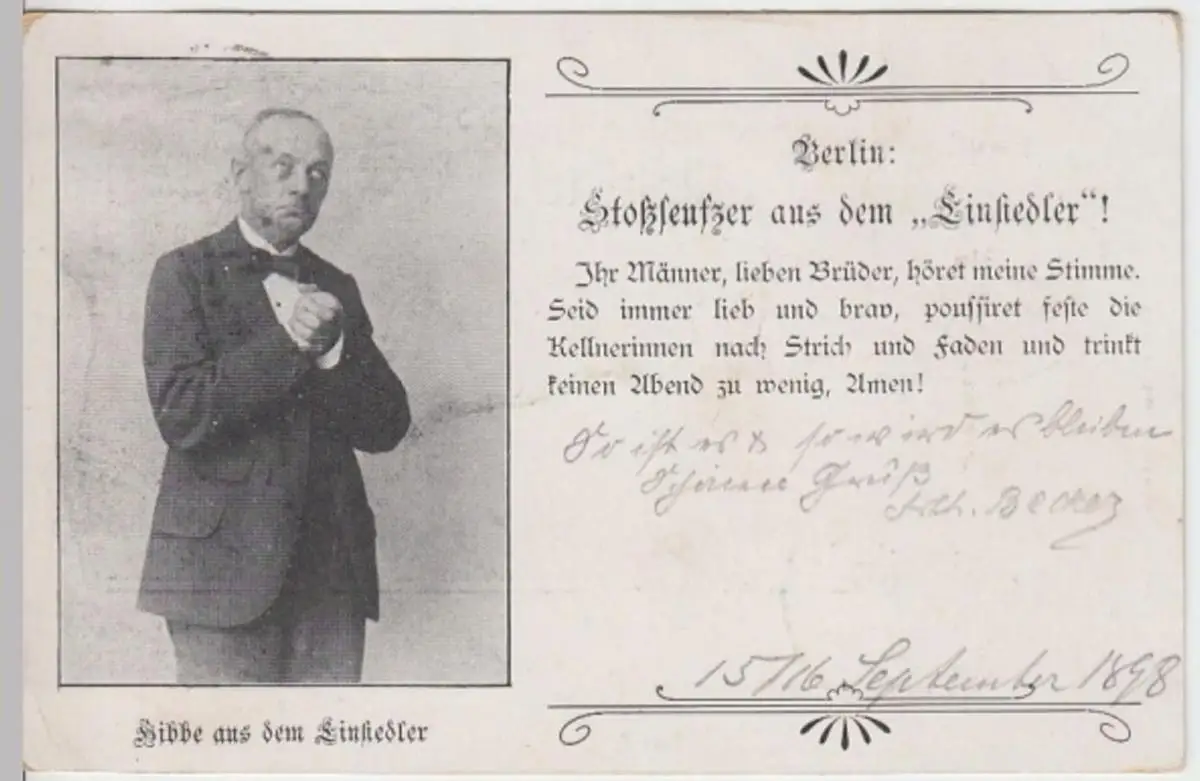 Berlin:
Stoßseufzer aus dem „Einsiedler“!
Ihr Männer, lieben Brüder, höret meine Stimme.
Seid immer lieb und brav, poussiret feste die
Kellnerinnen nach Strich und Faden und trinkt
keinen Abend zu wenig, Amen!
So ist es & so wird es bleiben
Schönen Gruß
Becker
15/16 September 1898
Hibbe aus dem Einsiedler